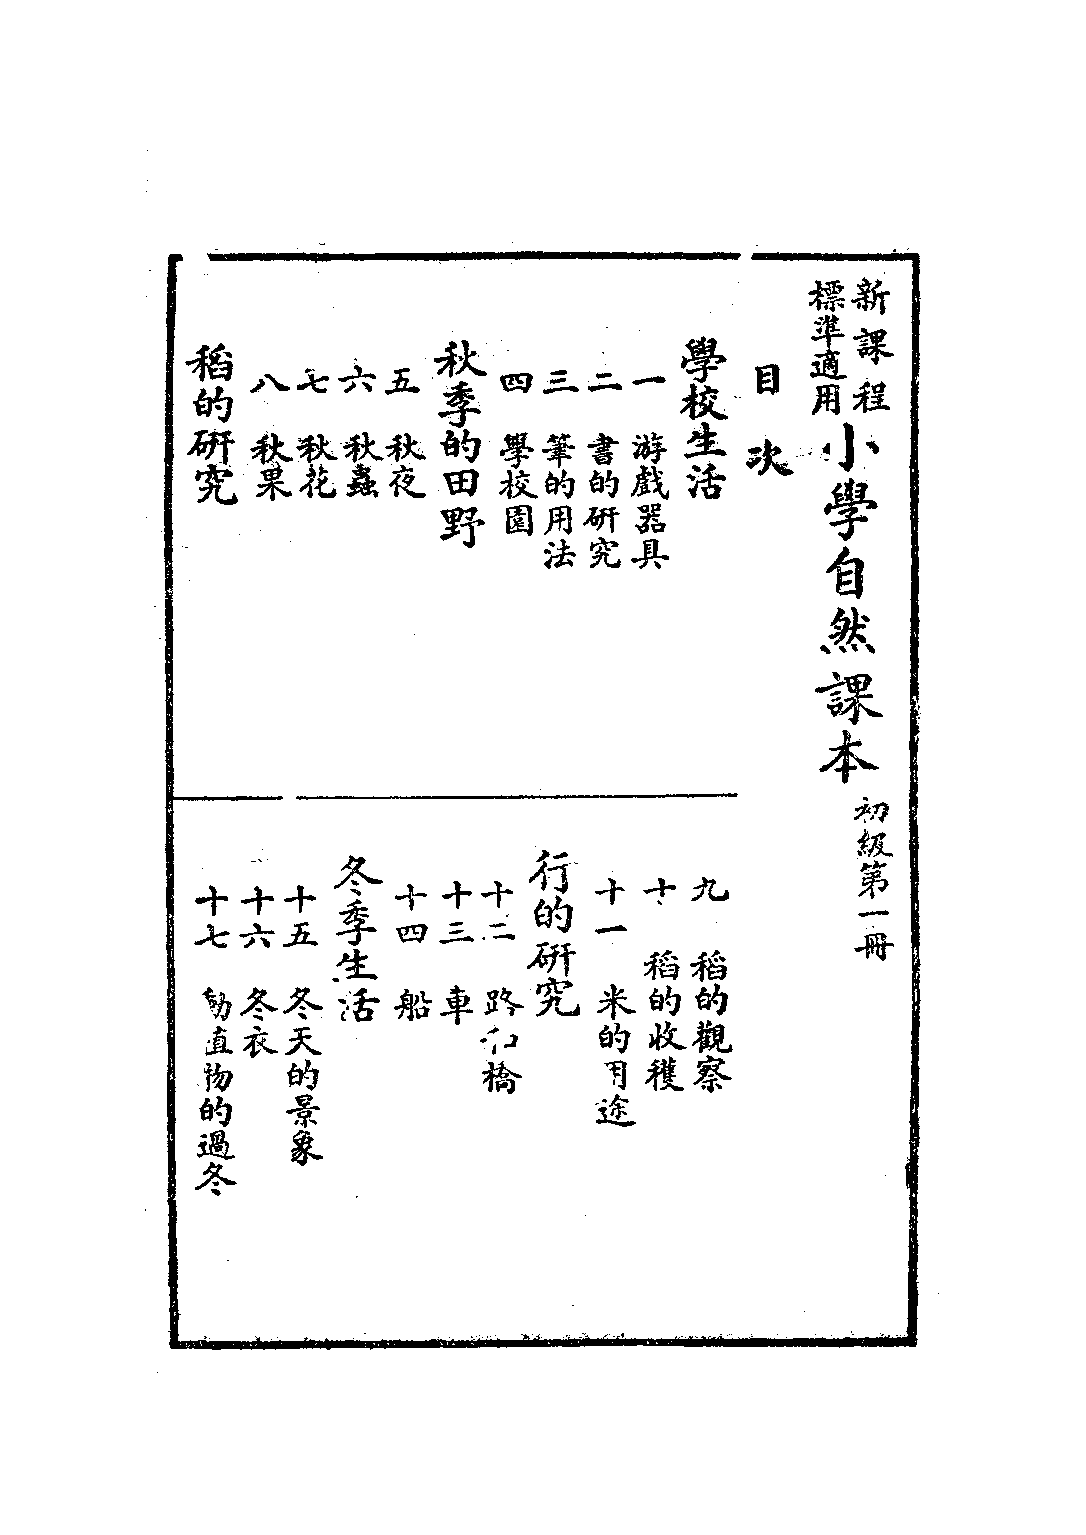 新課程
標準適用
小學自然課本
初級第一冊
目次
學校生活
一 游戲器具
二 書的研究
三 筆的用法
四 學校園
秋季的田野
五 秋夜
六 秋蟲
七 秋花
八 秋果
稻的研究
九 稻的觀察
十 稻的收穫
十一 米的用途
行的研究
十二 路和橋
十三 車
十四 船
冬季生活
十五 冬天的景象
十六 冬衣
十七 動植物的過冬